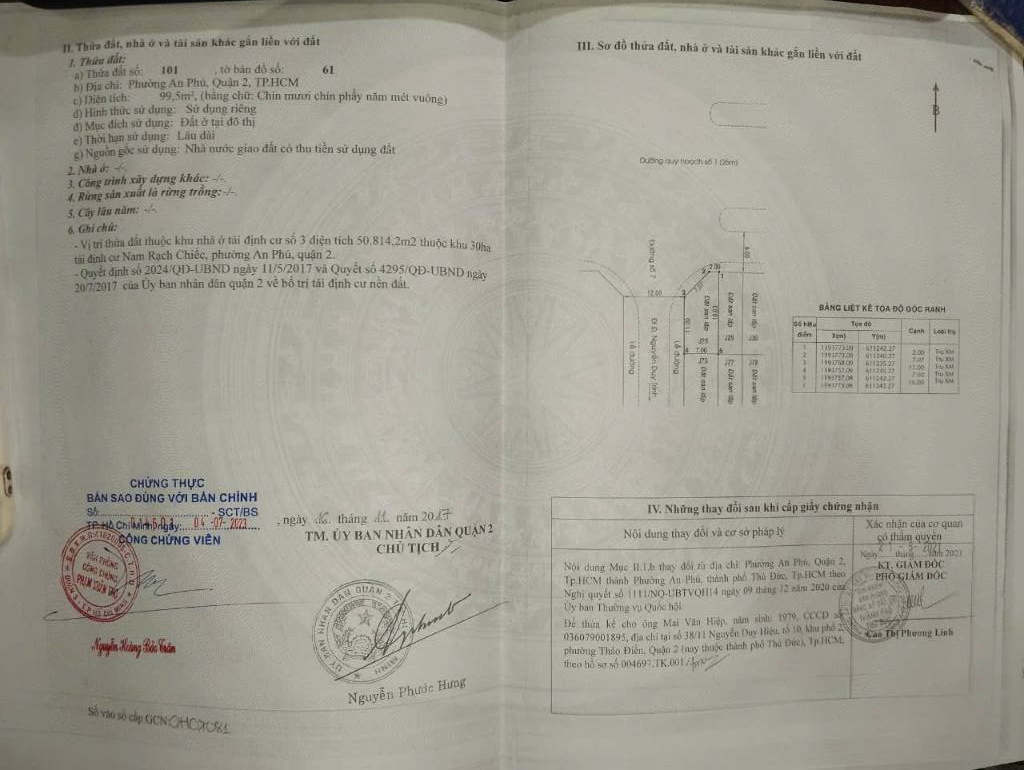 II. Thửa đất, nhà ở và tài sản khác gắn liền với đất
1. Thửa đất:
a) Thửa đất số: 101 , tờ bản đồ số: 61
b) Địa chỉ: Phường An Phú, Quận 2, TP.HCM
c) Diện tích: 99,5m², (bằng chữ: Chín mươi chín phẩy năm mét vuông)
d) Hình thức sử dụng: Sử dụng riêng
đ) Mục đích sử dụng: Đất ở tại đô thị
e) Thời hạn sử dụng: Lâu dài
g) Nguồn gốc sử dụng: Nhà nước giao đất có thu tiền sử dụng đất
2. Nhà ở: -/-
3. Công trình xây dựng khác: -/-
4. Rừng sản xuất là rừng trồng: -/-
5. Cây lâu năm: -/-
6. Ghi chú:
- Vị trí thửa đất thuộc khu nhà ở tái định cư số 3 diện tích 50.814,2m2 thuộc khu 30ha
tái định cư Nam Rạch Chiếc, phường An Phú, quận 2.
- Quyết định số 2024/QD-UBND ngày 11/5/2017 và Quyết số 4295/QĐ-UBND ngày
20/7/2017 của Ủy ban nhân dân quận 2 về bố trí tái định cư nền đất.
CHỨNG THỰC
BẢN SAO ĐÚNG VỚI BẢN CHÍNH
Số - SCT/BS
TP. Hồ Chí Minh ngày: 04-07-2023
CÔNG CHỨNG VIÊN
VĂN PHÒNG
CÔNG CHỨNG
Nguyễn Hoàng Bảo Trân
, ngày 16 tháng 11 năm 2017
TM. ỦY BAN NHÂN DÂN QUẬN 2
CHỦ TỊCH
ỦY BAN NHÂN DÂN QUẬN 2
Nguyễn Phước Hưng
Số vào sổ cấp GCN:
III. Sơ đồ thửa đất, nhà ở và tài sản khác gắn liền với đất
B
Đường quy hoạch số 1 (26m)
Đường số 7
6.00
2.00
7.07
2
1
12.00
3
Lề đường
Đi Đ. Nguyễn Duy Trinh
Lề đường
11.00
Đất san lấp
Đất san lấp
Đất san lấp
J25
J29
J30
4 7.00 5
J73
J77
J78
Đất san lấp
Đất san lấp
Đất san lấp
BẢNG LIỆT KÊ TỌA ĐỘ GÓC RANH
Số hiệu điểm Tọa độ Cạnh Loại trụ
X(m) Y(m)
IV. Những thay đổi sau khi cấp giấy chứng nhận
Nội dung thay đổi và cơ sở pháp lý
Xác nhận của cơ quan
có thẩm quyền
Nội dung Mục II.1.b thay đổi từ địa chỉ: Phường An Phú, Quận 2,
Tp.HCM thành Phường An Phú, thành phố Thủ Đức, Tp.HCM theo
Nghị quyết số 1111/NQ-UBTVQH14 ngày 09 tháng 12 năm 2020 của
Ủy ban Thường vụ Quốc hội.
Để thừa kế cho ông Mai Văn Hiệp, năm sinh: 1979, CCCD số
036079001895, địa chỉ tại số 38/11 Nguyễn Duy Hiệu, tổ 10, khu phố 2,
phường Thảo Điền, Quận 2 (nay thuộc thành phố Thủ Đức), Tp.HCM,
theo hồ sơ số 004697.TK.001./
ngày tháng năm 2021
KT. GIÁM ĐỐC
PHÓ GIÁM ĐỐC
Cao Thị Phương Linh